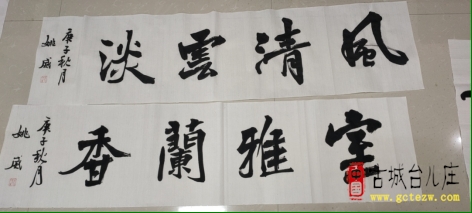 風清雲淡
庚子秋月
姚威
室雅蘭香
庚子秋月
姚威
中国古城台儿庄
www.gctezw.com